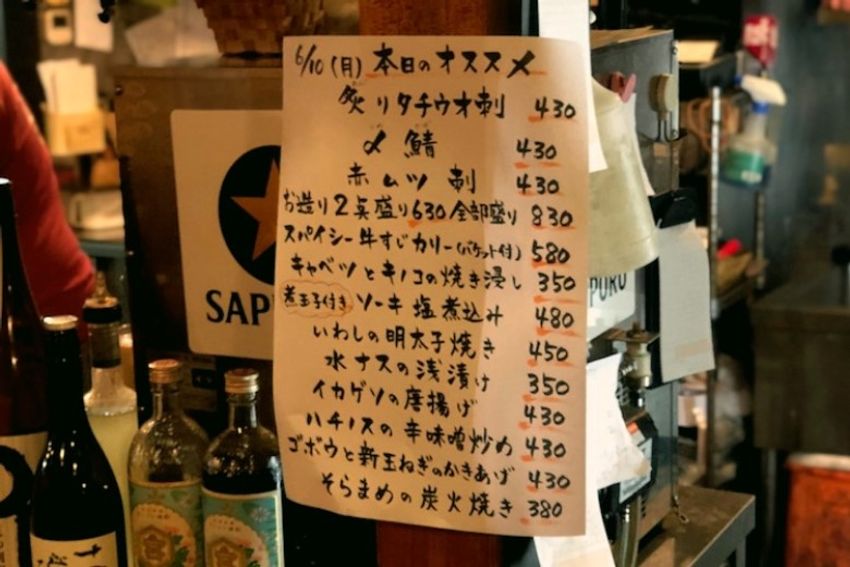 6/10(月) 本日のオススメ
炙りタチウオ刺 430
〆鯖 430
赤ムツ刺 430
お造り2点盛り630 全部盛り 830
スパイシー牛すじカリー(バケット付) 580
キャベツとキノコの焼き浸し 350
煮玉子付き ソーキ塩煮込み 480
いわしの明太子焼き 450
水ナスの浅漬け 350
イカゲソの唐揚げ 430
ハチノスの辛味噌炒め 430
ゴボウと新玉ねぎのかきあげ 430
そらまめの炭火焼き 380
SAP
PORO